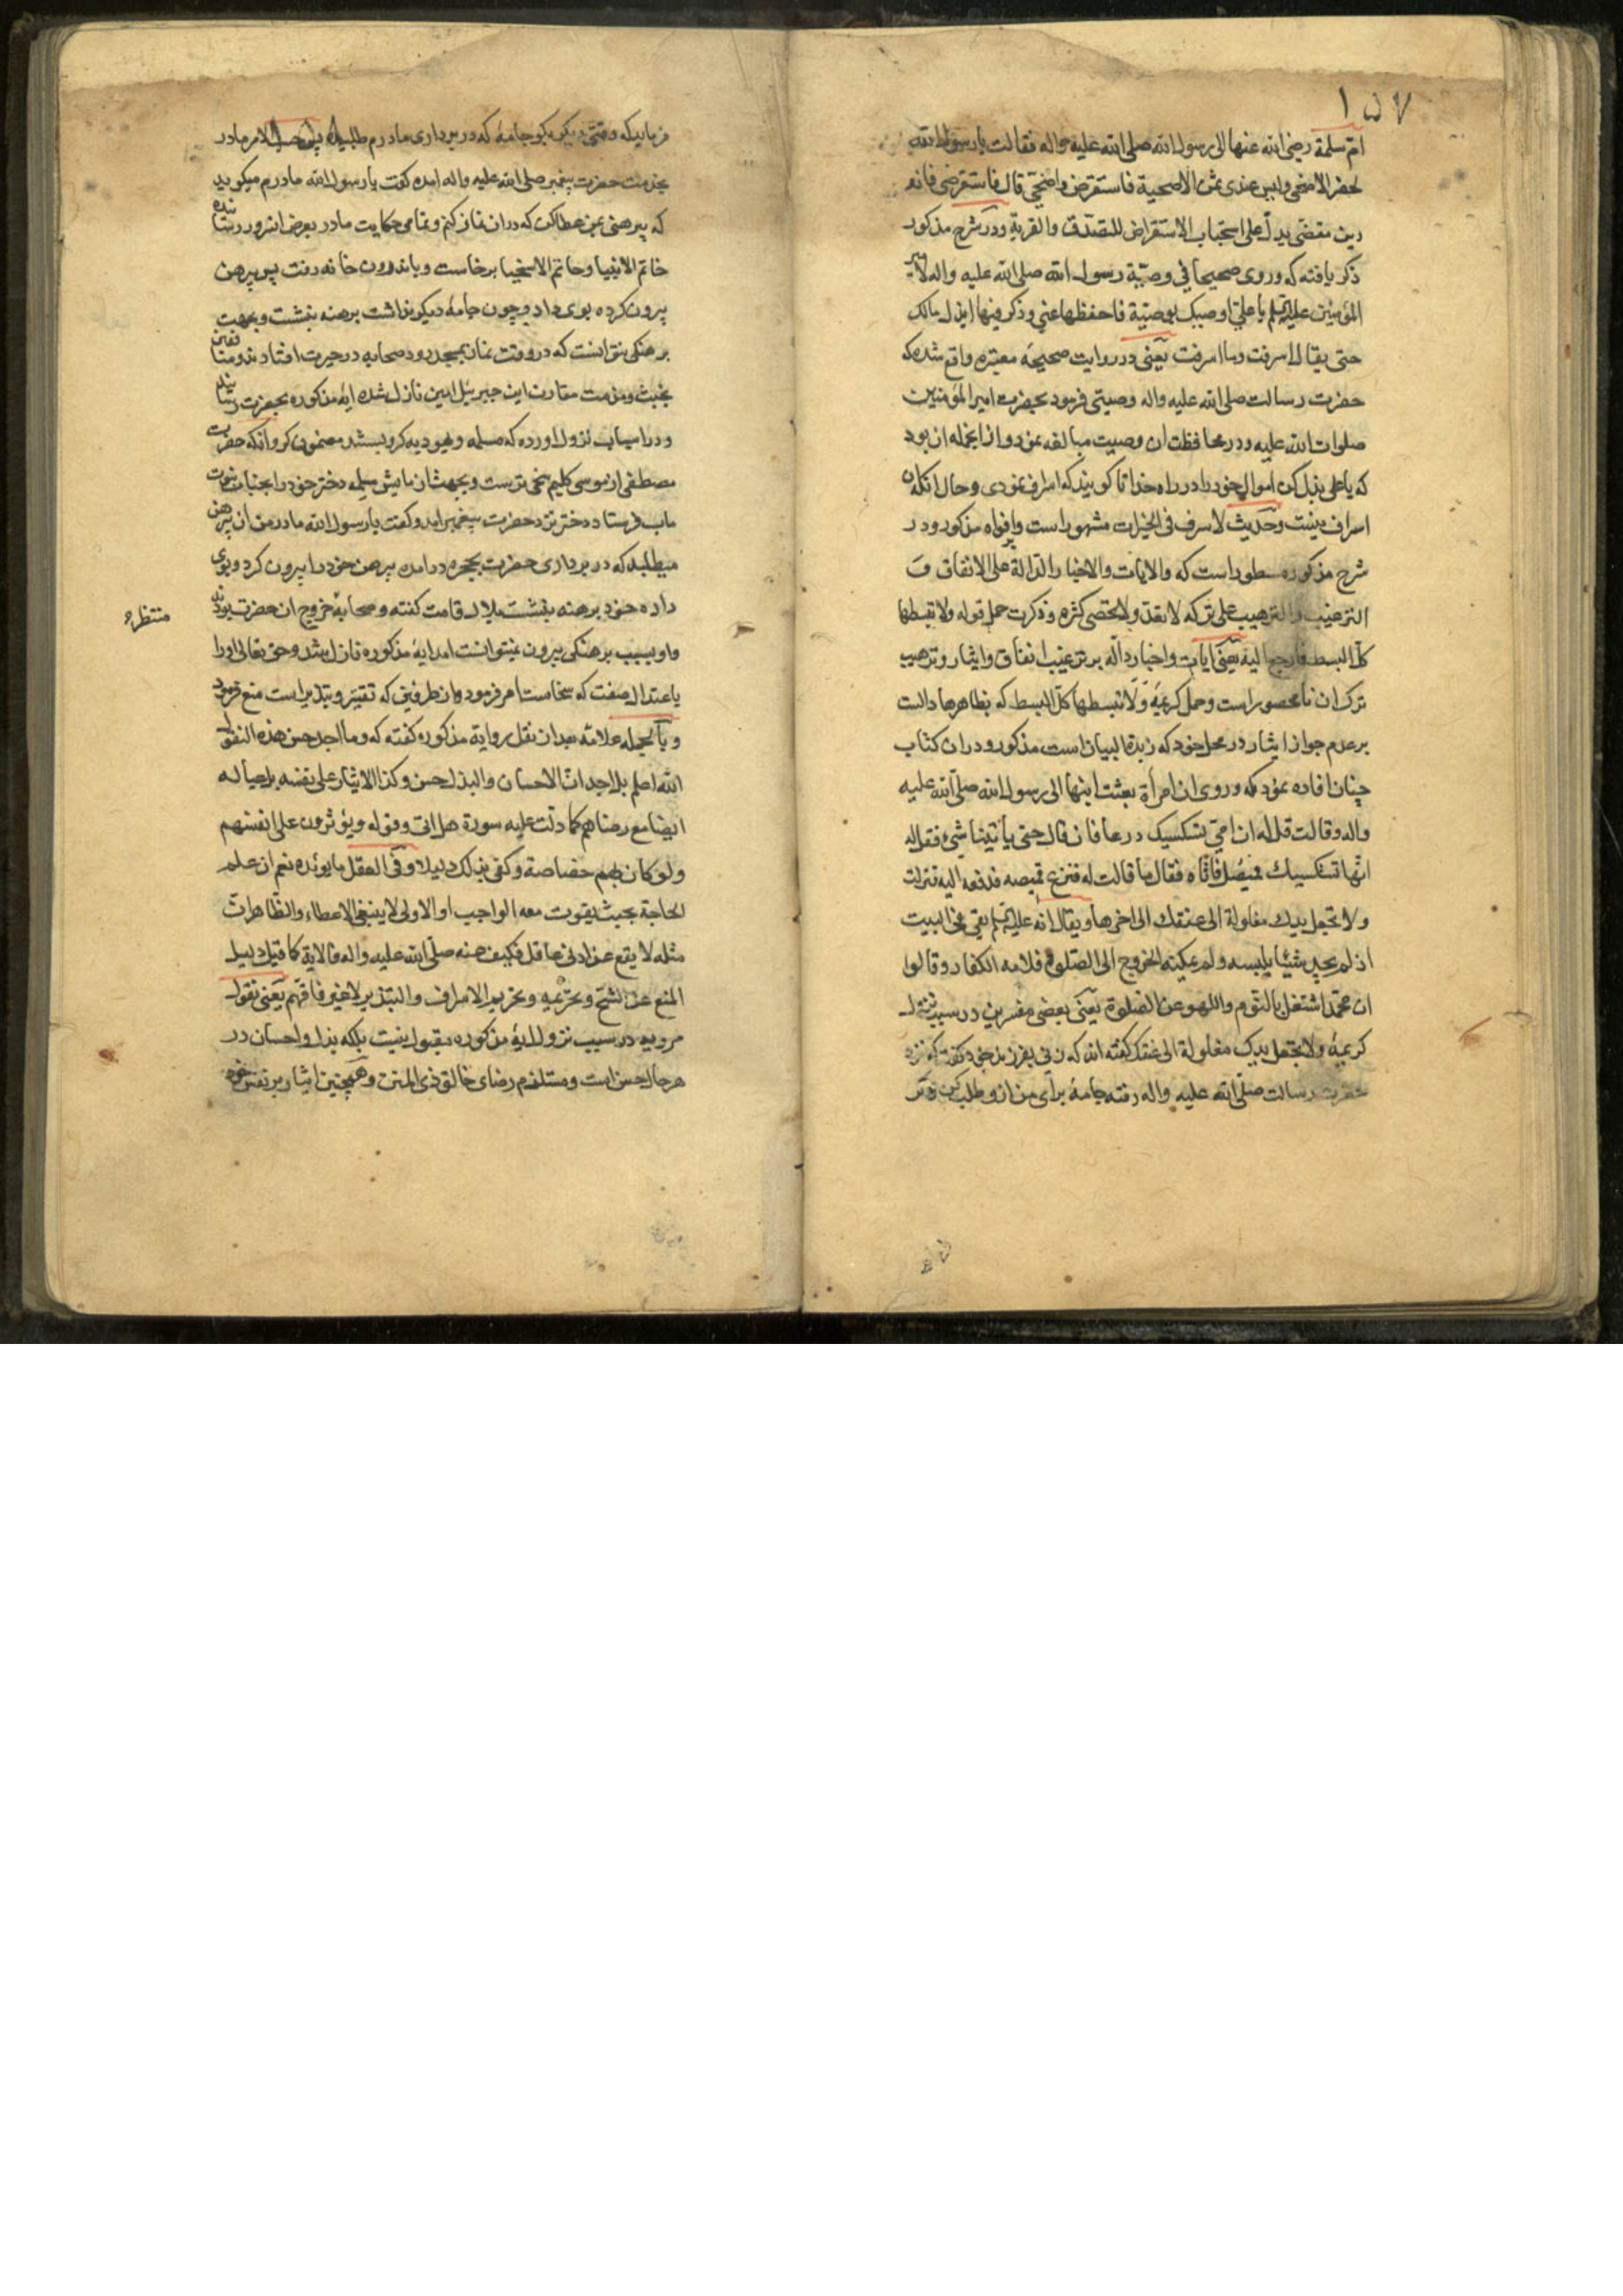 ۱۵۷
ام سلمة رضی الله عنها الی رسول الله صلی الله علیه واله فقالت یا رسول الله
یحضر الاضحی ولیس عندی ثمن الاضحیة فاستقرض واضحی قال فاستقرضی فانه
دین مقضی یدل علی استحباب الاستقراض للتصدق والقربة ودر شرح مذکور
ذکر یافته که وروی صحیحا فی وصیة رسول الله صلی الله علیه واله لامیر
المؤمنین علیه السلم یا علی اوصیک بوصیة فاحفظها عنی وذکر فیها ابذل مالک
حتی یقال اسرفت وما اسرفت یعنی در روایت صحیحه معتبره واقع شده که
حضرت رسالت صلی الله علیه واله وصیتی فرمود بحضرت امیر المؤمنین
صلوات الله علیه ودر محافظت ان وصیت مبالغه نمود واز انجمله ان بود
که یا علی بذل کن اموال خود را در راه خدا تا کویند که اسراف نمودی وحال انکه ان
اسراف نیست وحدیث لا سرف فی الخیرات مشهور است وبافواه مذکور ودر
شرح مذکوره مسطور است که والایات والاخبار الدالة علی الانفاق و
الترغیب والترهیب علی ترکه لا تعد ولا تحصی کثره وذکرت حمل قوله ولا تبسطها
کل البسط فارجع الیه یعنی ایات واخبار داله بر ترغیب انفاق وایثار وترهیب
ترک ان نا محصور است وحمل کریمهٔ ولا تبسطها کل البسط که بظاهرها دالست
بر عدم جواز ایثار در محل خود که زبدة البیان است مذکور ودران کتاب
چنان افاده نمود که وروی ان امرأة بعثت ابنها الی رسول الله صلی الله علیه
واله وقالت قل له ان امی تستکسیک درعا فان قال حتی یأتینا شیء فقل له
انها تستکسیک قمیصک فاتاه فقال ما قالت له فنزع قمیصه فدفعه الیه فنزلت
ولا تجعل یدک مغلولة الی عنقک الی اخرها ویقال انه علیه السلم بقی فی البیت
اذ لم یجد شیئا یلبسه ولم یمکنه الخروج الی الصلوة فلامه الکفار وقالوا
ان محمدا اشتغل بالنوم واللهو عن الصلوة یعنی بعضی مفسرین در سبب نزول
کریمهٔ ولا تجعل یدک مغلولة الی عنقک کفته اند که زنی بفرزند خود کفت که نزد
حضرت رسالت صلی الله علیه واله رفته جامهٔ برای من ازو طلب کن
فرماید که وقتی دیکر بکو جامهٔ که در بر داری مادرم طلبیده پس حسب الامر مادر
بخدمت حضرت پیغمبر صلی الله علیه واله امده کفت یا رسول الله مادرم میکوید
که پیرهنی بمن عطا کن که دران نماز کنم وتمامی حکایت مادر بعرض انسرور رسانیده
خاتم الانبیا وحاتم الاسخیا برخاست وباندرون خانه رفت پس پیرهن
بیرون کرده بوی داد وچون جامهٔ دیکر نداشت برهنه بنشست وبجهت
برهنکی نتوانست که در وقت نماز بمسجد رود صحابه در حیرت افتادند ومنافقین
بخبث ومذمت مقارن این جبرئیل امین نازل شده ایهٔ مذکوره بحضرت رسانید
ودر اسباب نزول اورده که مسلمه ویهودیه کرو بستند مضمون کرو انکه حضرت
مصطفی از موسی کلیم سخی ترست وبجهت ازمایش مسلمه دختر خود را بجناب رسالت
ماب فرستاد دختر نزد حضرت پیغمبر امد وکفت یا رسول الله مادر من ان پیرهن
میطلبد که در بر داری حضرت بحجره در امده پیرهن خود را بیرون کرد وبوی
داده خود برهنه بنشست بلال قامت کفته وصحابه خروج ان حضرت بودند
منتظر
واو بسبب برهنکی بیرون نمیتوانست امد ایهٔ مذکوره نازل شد وحق تعالی اورا
باعتدال صفت که سخاست امر فرمود واز طرفین که تقتیر وتبذیر است منع فرمود
وبالجمله علامه بعد از نقل روایة مذکوره کفته که وما اجد حسن هذه النقول
الله اعلم بل اجد ان الاحسان والبذل حسن وکذا الایثار علی نفسه بل عیاله
ایضا مع رضاهم کما دلت علیه سورة هل اتی وقوله ویؤثرون علی انفسهم
ولو کان بهم خصاصة وکفی بذلک دلیلا وفی العقل ما یؤیده نعم ان علم
الحاجة بحیث یفوت معه الواجب او الاولی لا ینبغی الاعطاء والظاهر ان
مثله لا یقع عن ادنی عاقل فکیف عنه صلی الله علیه واله فالایة کما قیل دلیل
المنع عن الشح وتحریمه وتحریم الاسراف والتبذیر لا غیر فافهم یعنی نقول
مرویه در سبب نزول ایهٔ مذکوره مقبول نیست بلکه بذل واحسان در
هر حال حسن است ومستلزم رضای خالق ذی المنن وهمچنین ایثار بر نفس خود